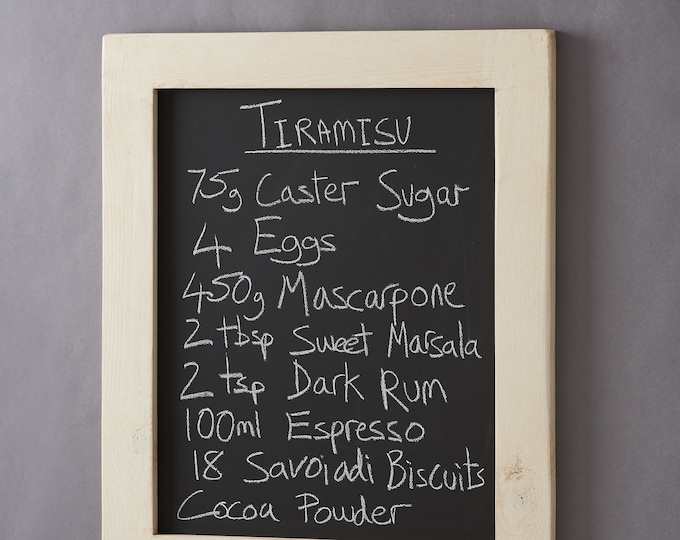 TIRAMISU
75g Caster Sugar
4 Eggs
450g Mascarpone
2 tbsp Sweet Marsala
2 tsp Dark Rum
100ml Espresso
18 Savoiadi Biscuits
Cocoa Powder